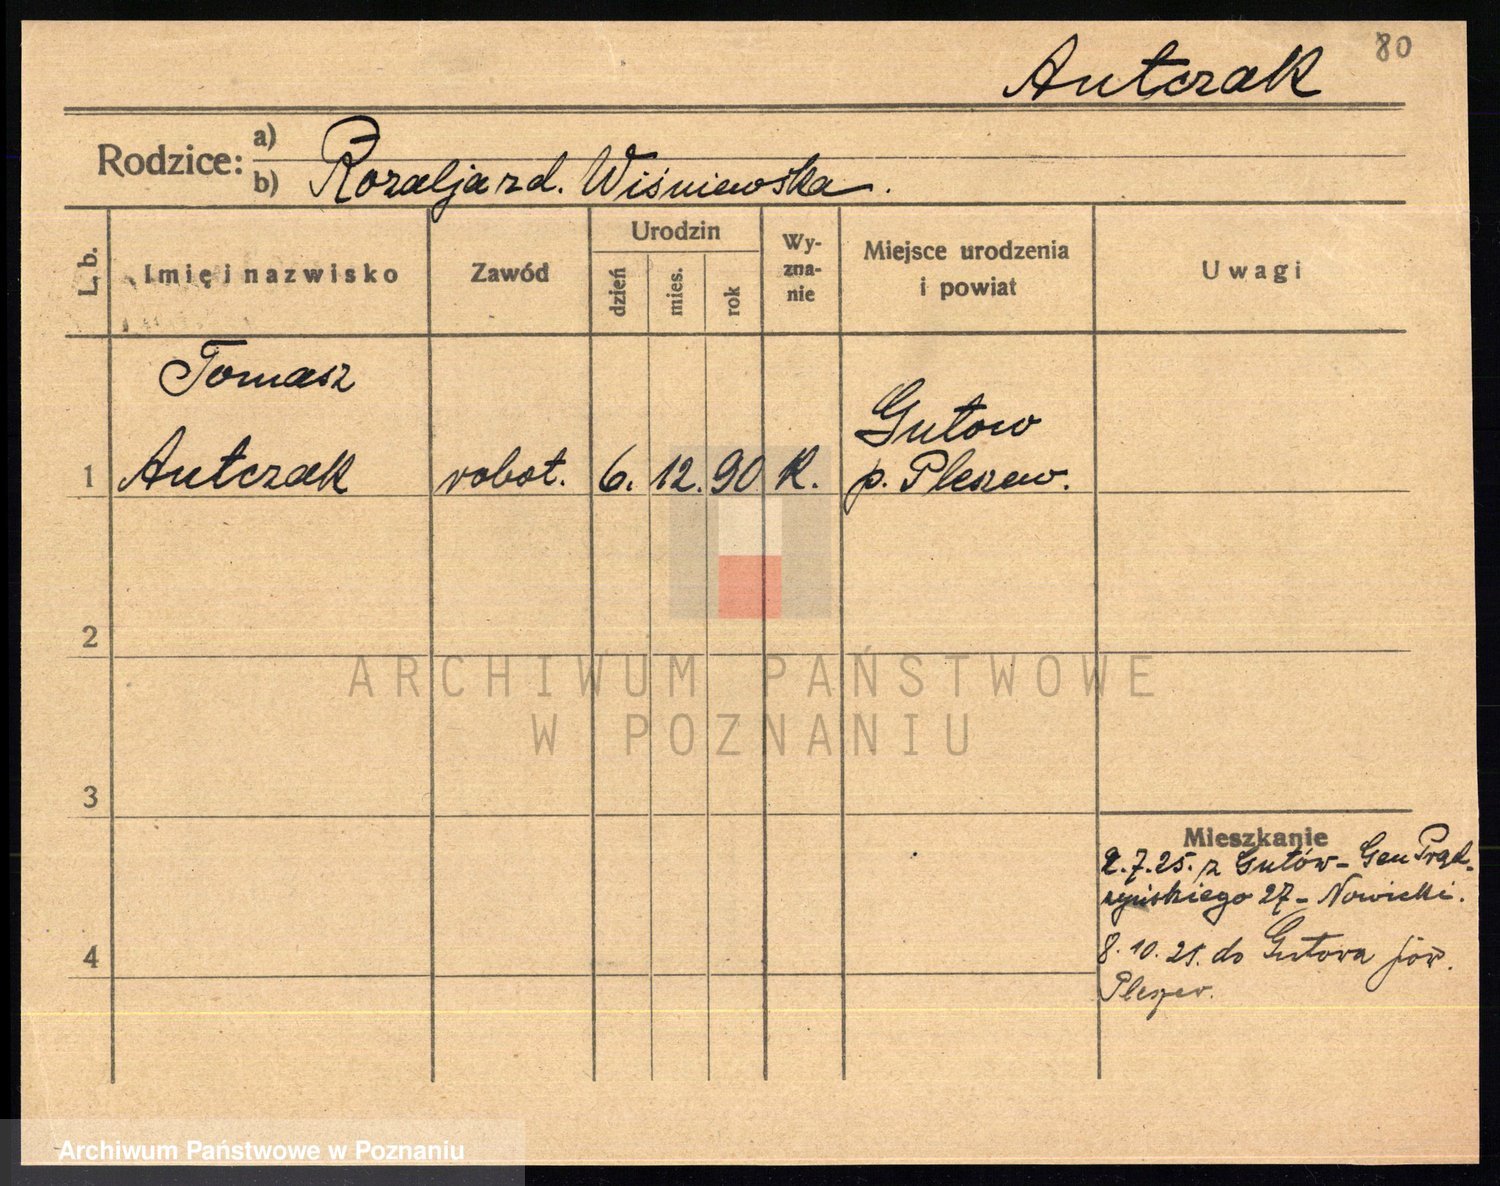 80
Antczak
Rodzice: a)
b) Rozalja zd. Wiśniewska.
L. b.
Imię i nazwisko
Zawód
Urodzin
dzień
mies.
rok
Wy-
zna-
nie
Miejsce urodzenia
i powiat
Uwagi
Tomasz
1 Antczak robot. 6. 12. 90 K. Gutow
p. Pleszew.
2
3
4
Mieszkanie
2.7.25. z Gutów - Gen Prąd-
zyńskiego 27 - Nowicki.
8.10.25. do Gutowa pow.
Pleszew.
ARCHIWUM PAŃSTWOWE
W POZNANIU
Archiwum Państwowe w Poznaniu